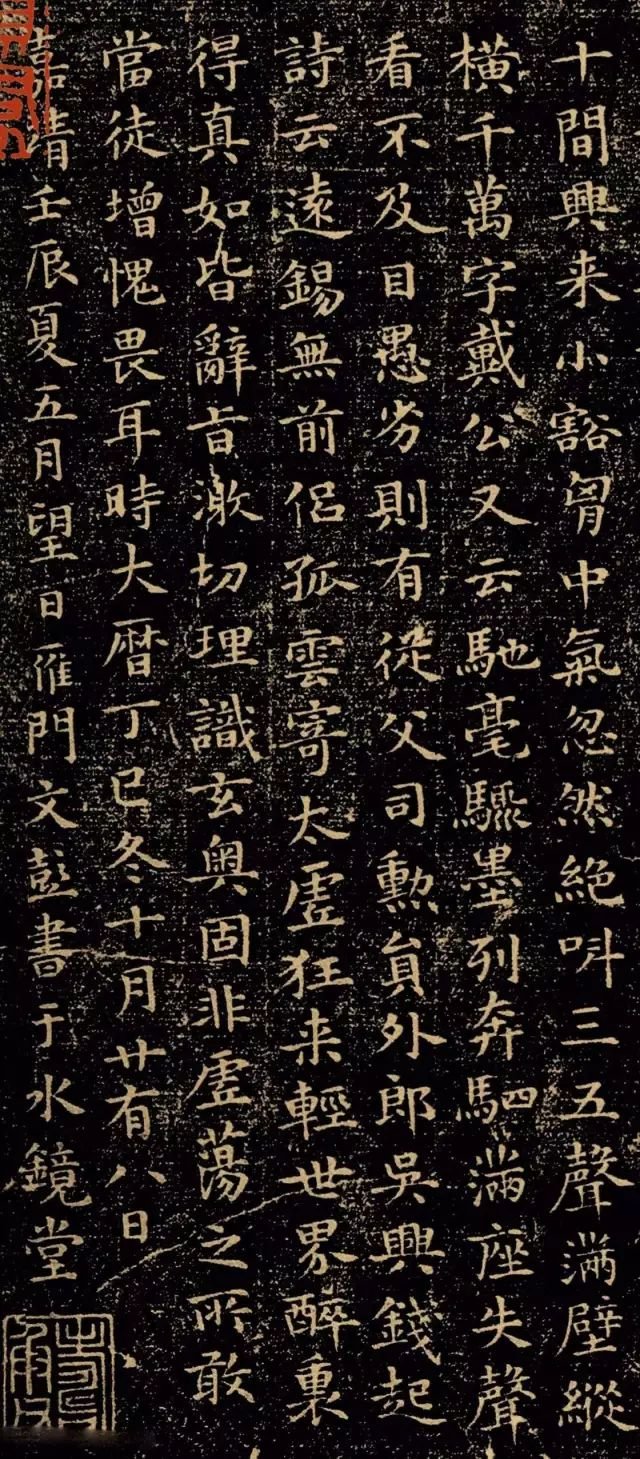 十間興来小豁胷中氣忽然絶呌三五聲滿壁縱
橫千萬字戴公又云馳毫驟墨列奔駟滿座失聲
看不及目愚劣則有従父司勲員外郎吳興錢起
詩云遠錫無前侣孤雲寄太虚狂来輕世界醉裏
得真如皆辭旨激切理識玄奥固非虚蕩之所敢
當徒增愧畏耳時大暦丁巳冬十月廿有八日
嘉靖壬辰夏五月望日雁門文彭書于水鏡堂